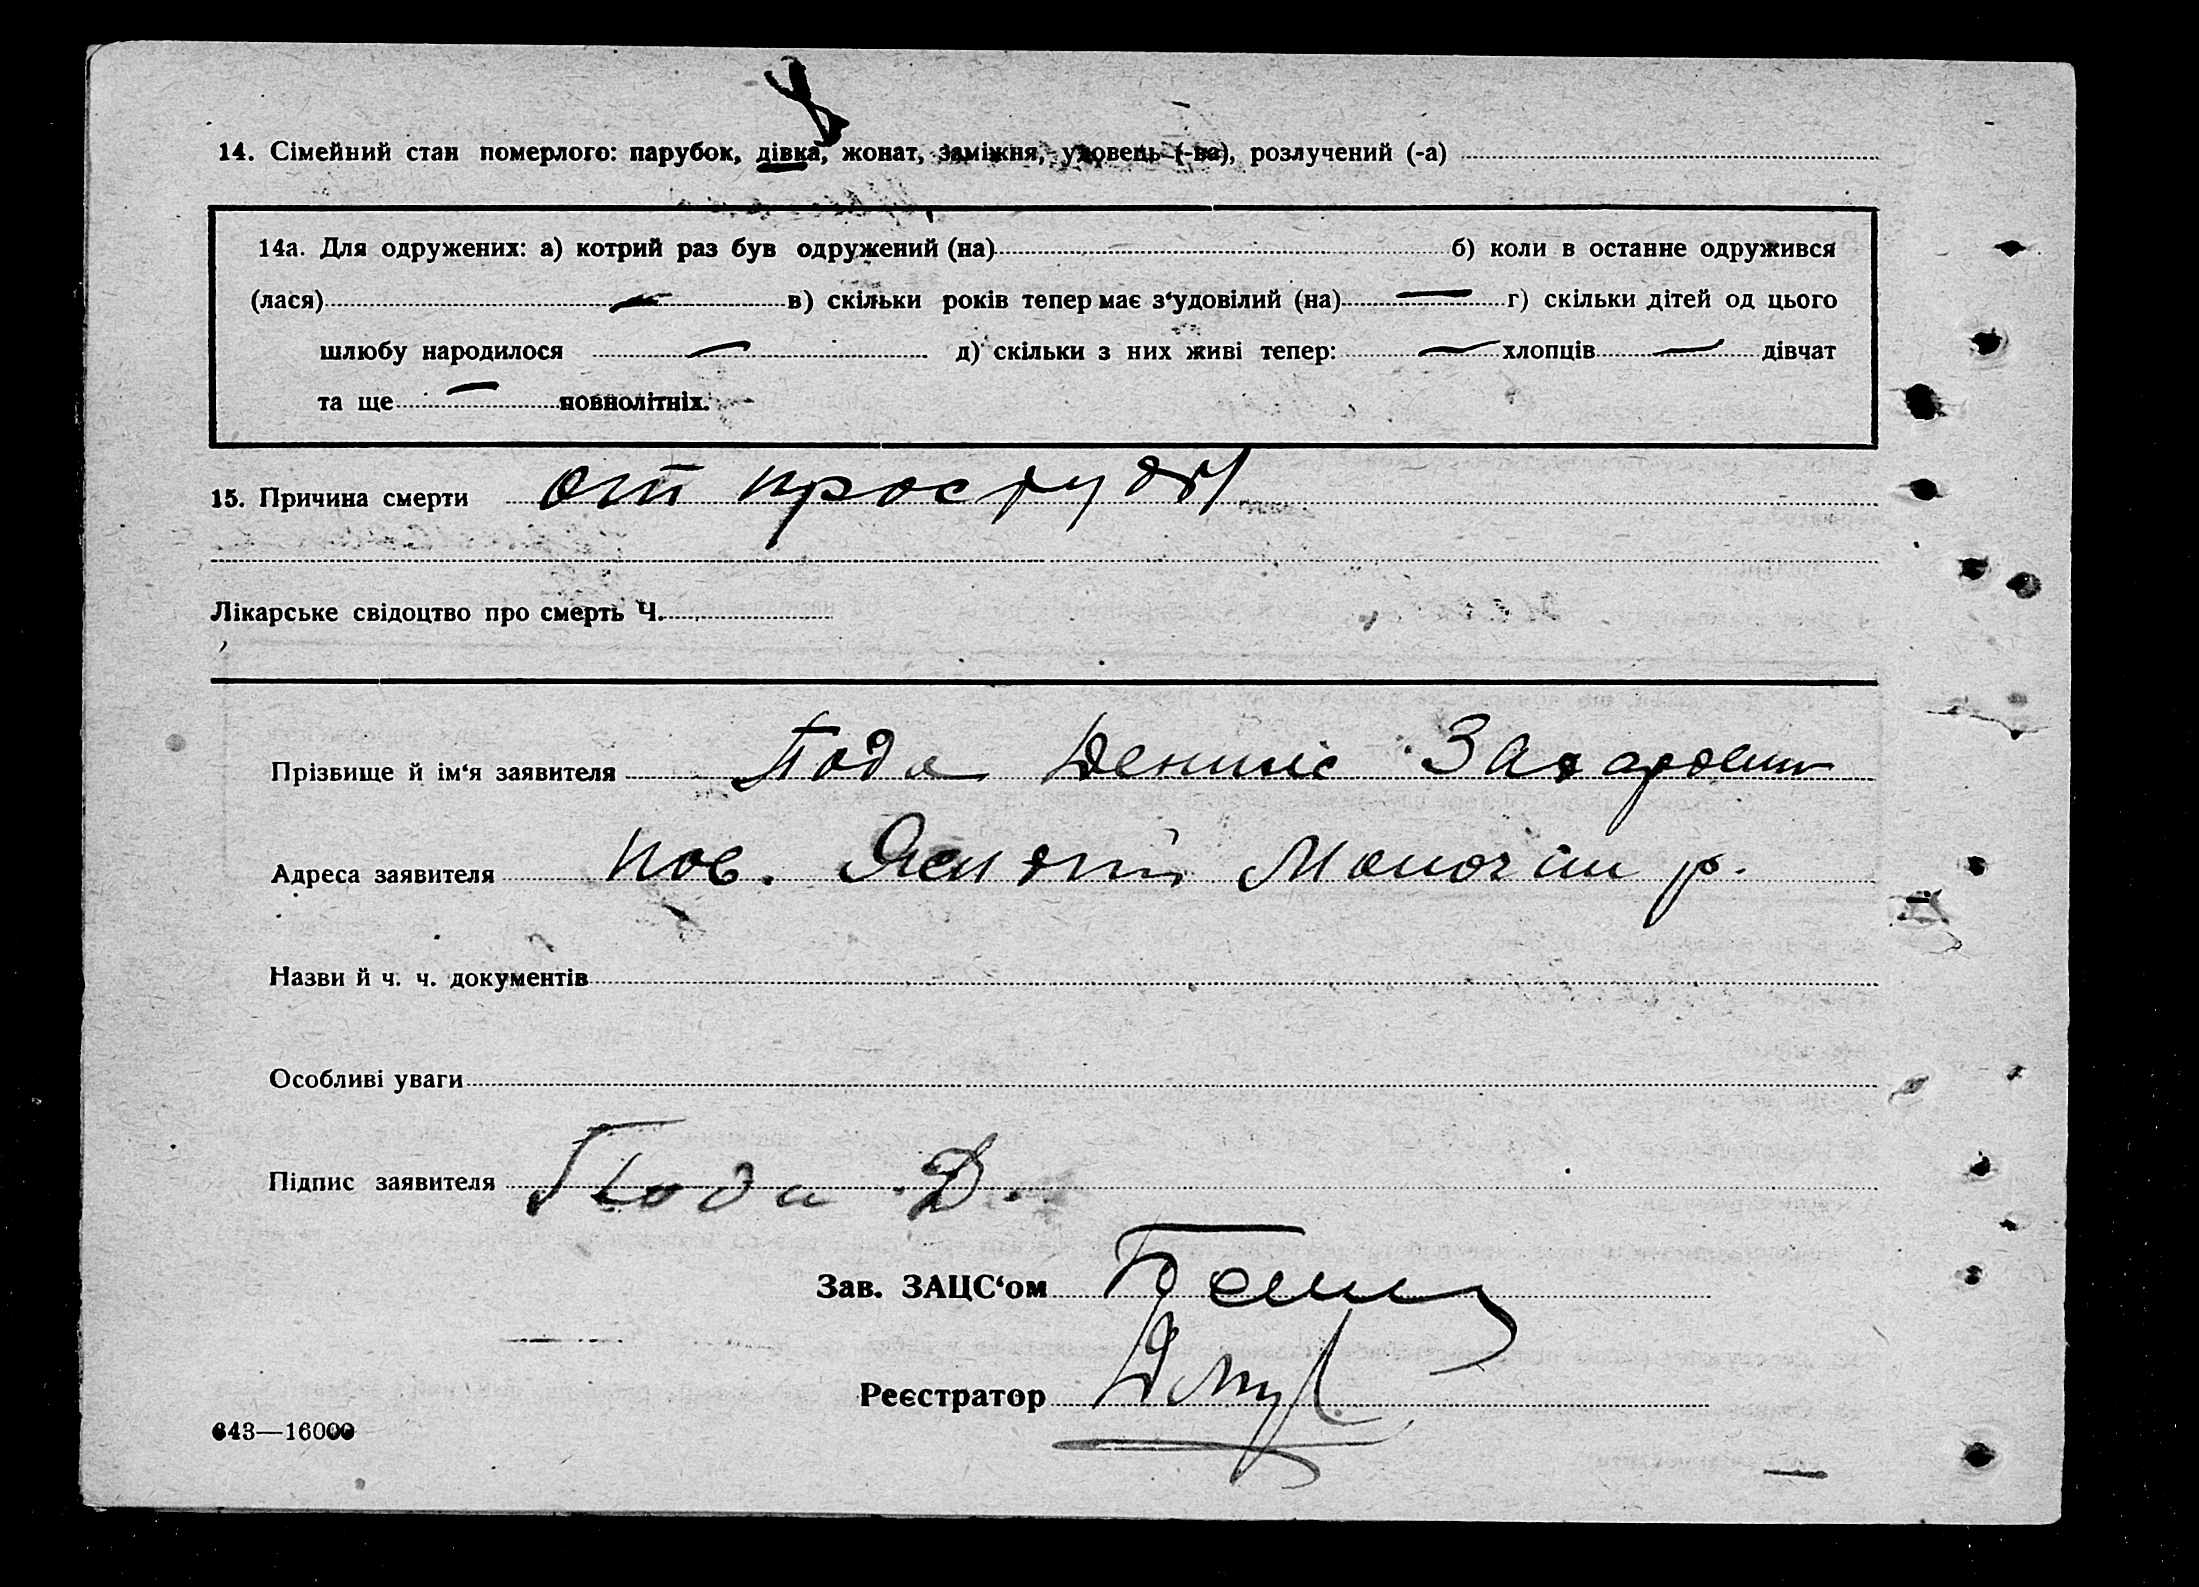 14. Сімейний стан померлого: парубок, дівка, жонат, заміжня, удовець (-ва), розлучений (-а)
14а. Для одружених: а) котрий раз був одружений (на) б) коли в останне одружився
(лася) — в) скільки років тепер має з‘удовілий (на) — г) скільки дітей од цього
шлюбу народилося — д) скільки з них живі тепер: — хлопців — дівчат
та ще — повнолітніх.
15. Причина смерти от простуды
Лікарське свідоцтво про смерть Ч.
Прізвище й ім‘я заявителя Пода Денис Захарович
Адреса заявителя пос. р.
Назви й ч. ч. документів
Особливі уваги
Підпис заявителя Пода Д.
Зав. ЗАЦС‘ом
Реєстратор
643—16000